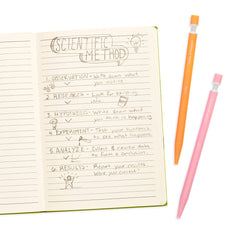 SCIENTIFIC
METHOD
1. OBSERVATION - Write down what
you notice
2. RESEARCH - Look for
info
3. HYPOTHESIS - Write down what
you think is happening
4. EXPERIMENT - Test your hypothesis
to see what happens
5. ANALYZE - Collect & record data
to form a conclusion
6. RESULTS - Report your results
Were you correct?